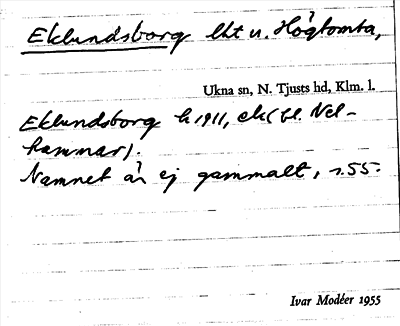 Eklundsborg lht u. Högtomta,
Ukna sn, N. Tjusts hd, Klm. l.
Eklundsborg k 1911, ek( bl. Nel-
hammar).
Namnet är ej gammalt, s. 55.
Ivar Modéer 1955